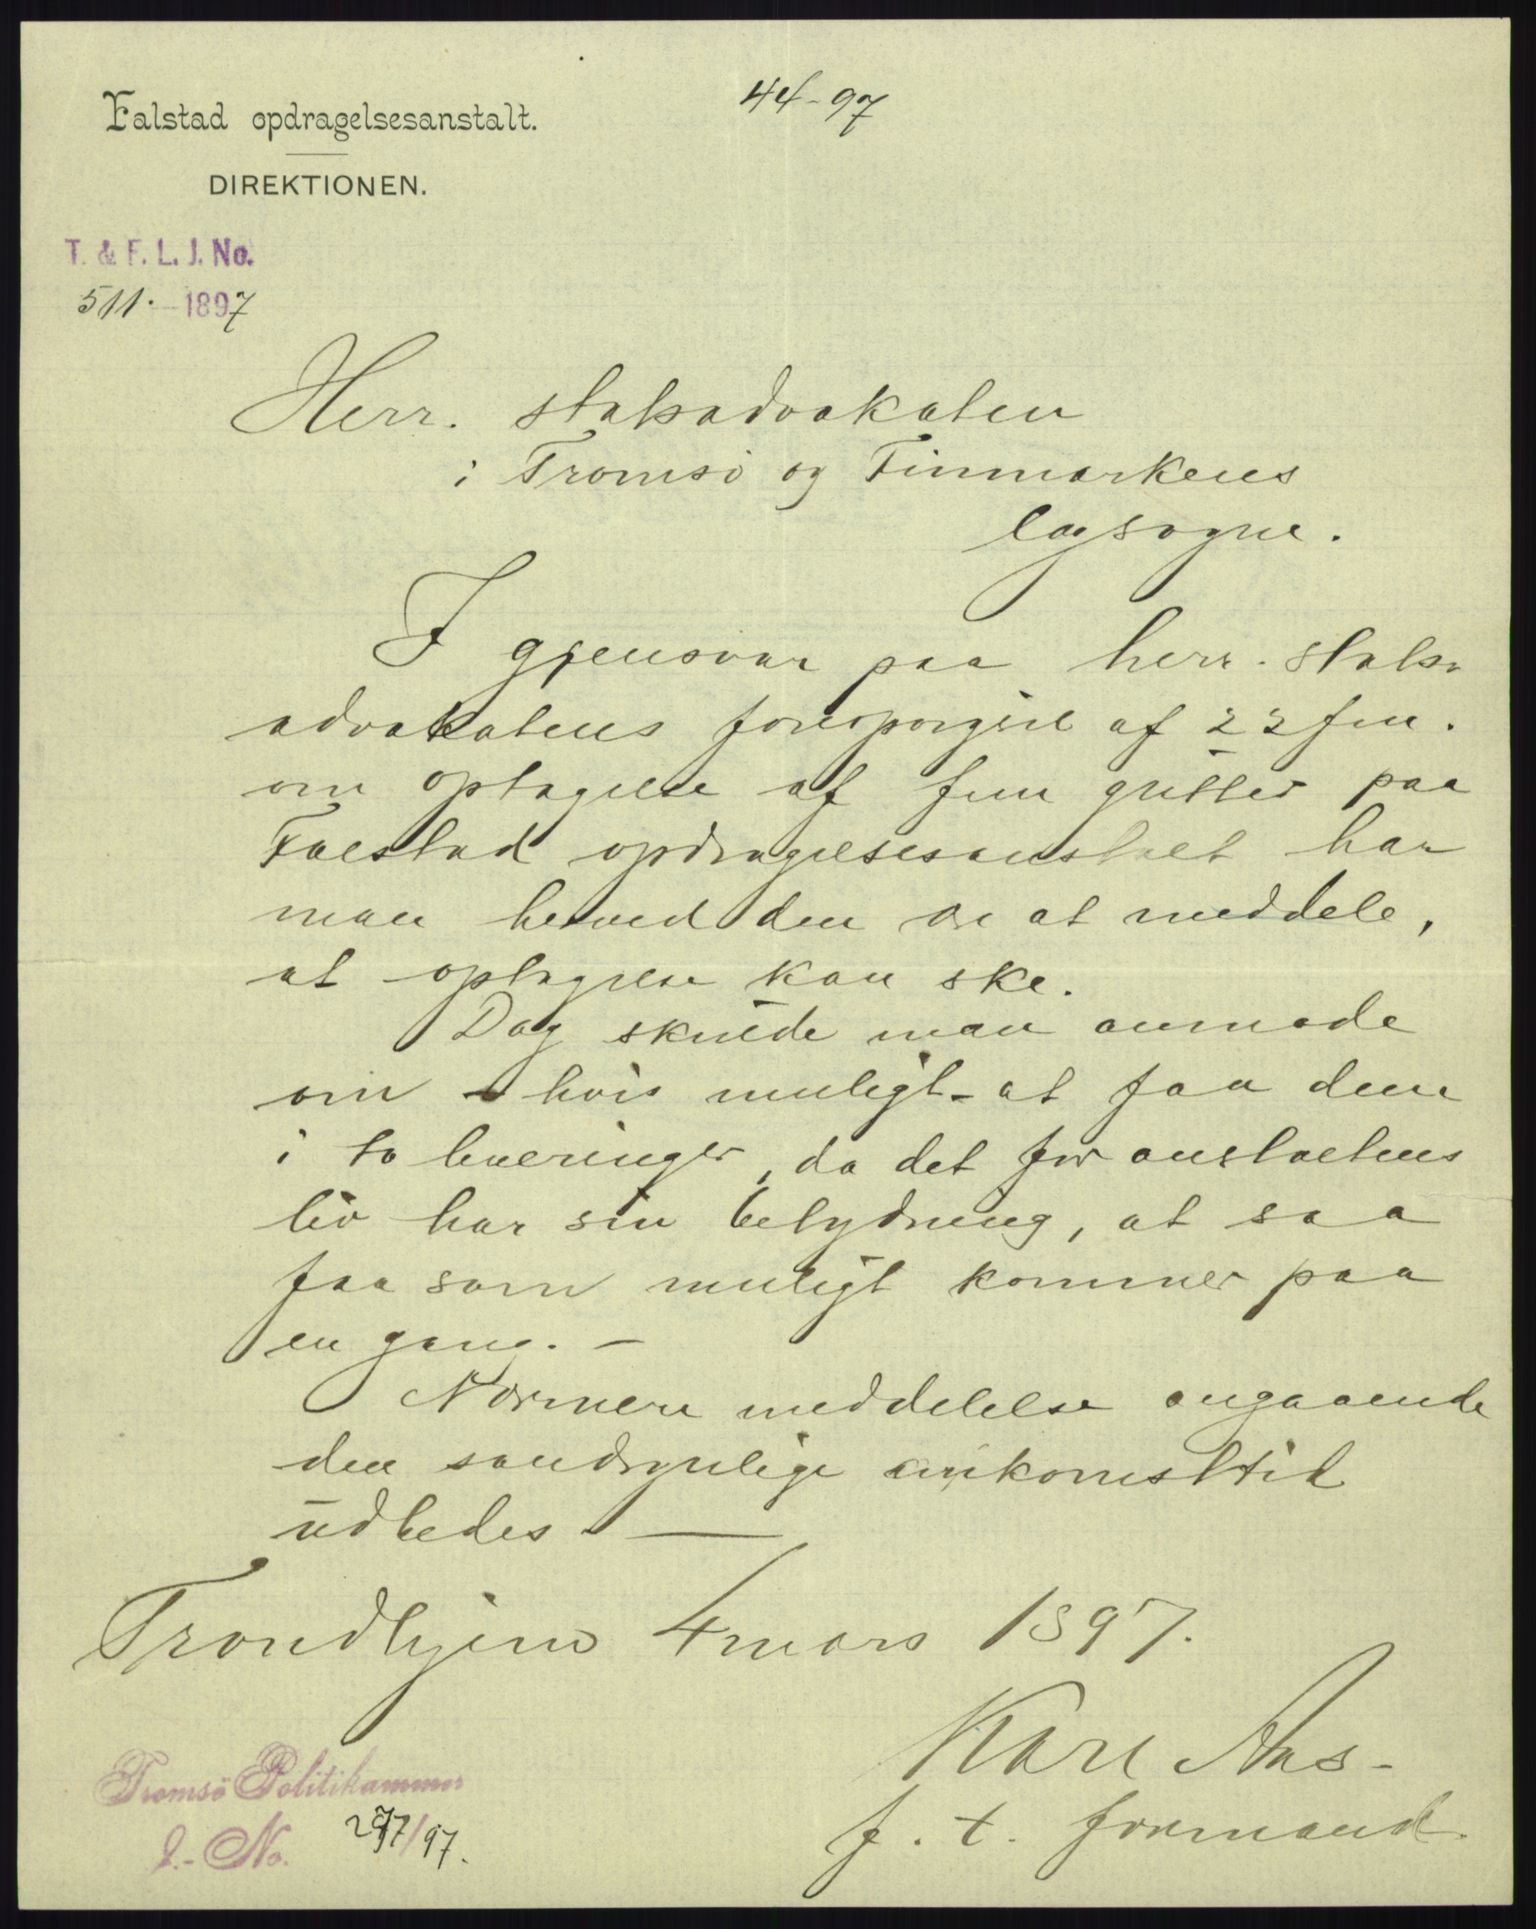 Falstad opdragelsesanstalt.
44-97
DIREKTIONEN.
T. & F. L. J. No.
511. - 1897
Herr. statsadvokaten
i Tromsö og Finmarkens
lagsogne.
I gjensvar paa herr. stats-
advokatens forespörgsel af 22 fm.
om optagelse af fem gutter paa
Falstad opdragelsesanstalt har
man herved den ære at meddele,
at optagelse kan ske.
Dog skulde man anmode
om - hvis muligt - at faa dem
i to leveringer, da det for anstaltens
liv har sin betydning, at saa
faa som muligt kommer paa
en gang. -
Nærmere meddelelse angaaende
den sandsynlige ankomsttid
udbedes. —
Trondhjem 4 mars 1897.
Karl Aas -
f. t. formand.
Tromsö Politikammer
J.- No. 297/97.